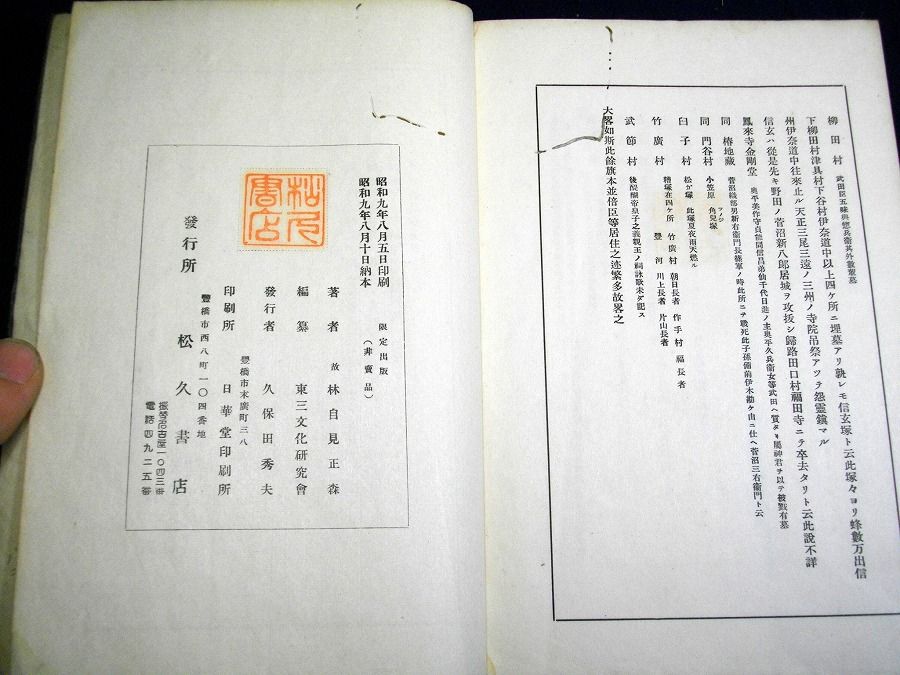 柳田村 武田臣五味與惣兵衞其外數輩墓
柳田村津具村下谷村伊奈道中以上四ケ所ニ埋墓アリ孰レモ信玄塚ト云此塚々ヨリ蜂數万出信
州伊奈道中往來止ル天正三尾三遠ノ三州ノ寺院吊祭アツテ怨靈鎭マル
信玄ハ從是先キ野田ノ菅沼新八郎居城ヲ攻拔シ歸路田口村福田寺ニテ卒去タリト云此說不詳
鳳來寺金剛堂 奥平美作守貞能同信昌弟仙千代日進ノ圭奥平久兵衞女等武田ヘ質タルヲ屬神君ヲ以テ被戮有墓
同 椿地藏 菅沼織部男新右衞門長篠軍ノ時此所ニテ戰死此子孫備前伊木勘ケ由ニ仕ヘ菅沼三右衞門ト云
同 門谷村 小笠原 角兒塚
臼子村 松ガ塚 此塚夏夜雨天燃ル
竹廣村 糟塚在四ケ所 竹廣村 朝日長者 作手村 福長者
豐河 川上長者 片山長者
武節村 後醍醐帝皇子之義親王ノ祠詠歌未ダ記ス
大畧如斯此餘旗本並倍臣等居住之迹繁多故畧之
昭和九年八月五日印刷
昭和九年八月十日納本
限定出版
(非賣品)
著者 故 林自見正森
編纂 東三文化研究會
豐橋市末廣町三八
發行者 久保田秀夫
印刷所 日華堂印刷所
豐橋市西八町一〇四番地
發行所 松久書店
振替名古屋一〇四三番
電話四九二五番
松久
書店